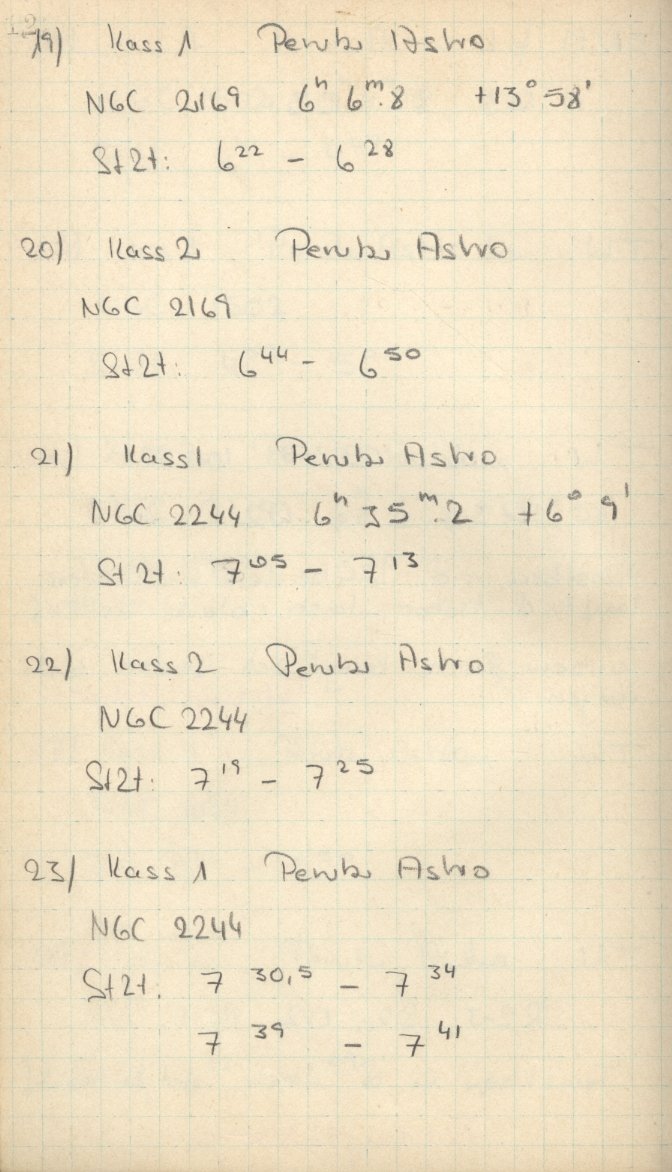 19) Kass 1 Perutz Astro
NGC 2169 6ʰ 6ᵐ.8 +13° 58'
StZt: 6²² – 6²⁸
20) Kass 2 Perutz Astro
NGC 2169
StZt: 6⁴⁴ – 6⁵⁰
21) Kass 1 Perutz Astro
NGC 2244 6ʰ 35ᵐ.2 +6° 9'
StZt: 7⁰⁵ – 7¹³
22) Kass 2 Perutz Astro
NGC 2244
StZt: 7¹⁹ – 7²⁵
23) Kass 1 Perutz Astro
NGC 2244
StZt: 7³⁰,⁵ – 7³⁴
7³⁹ – 7⁴¹